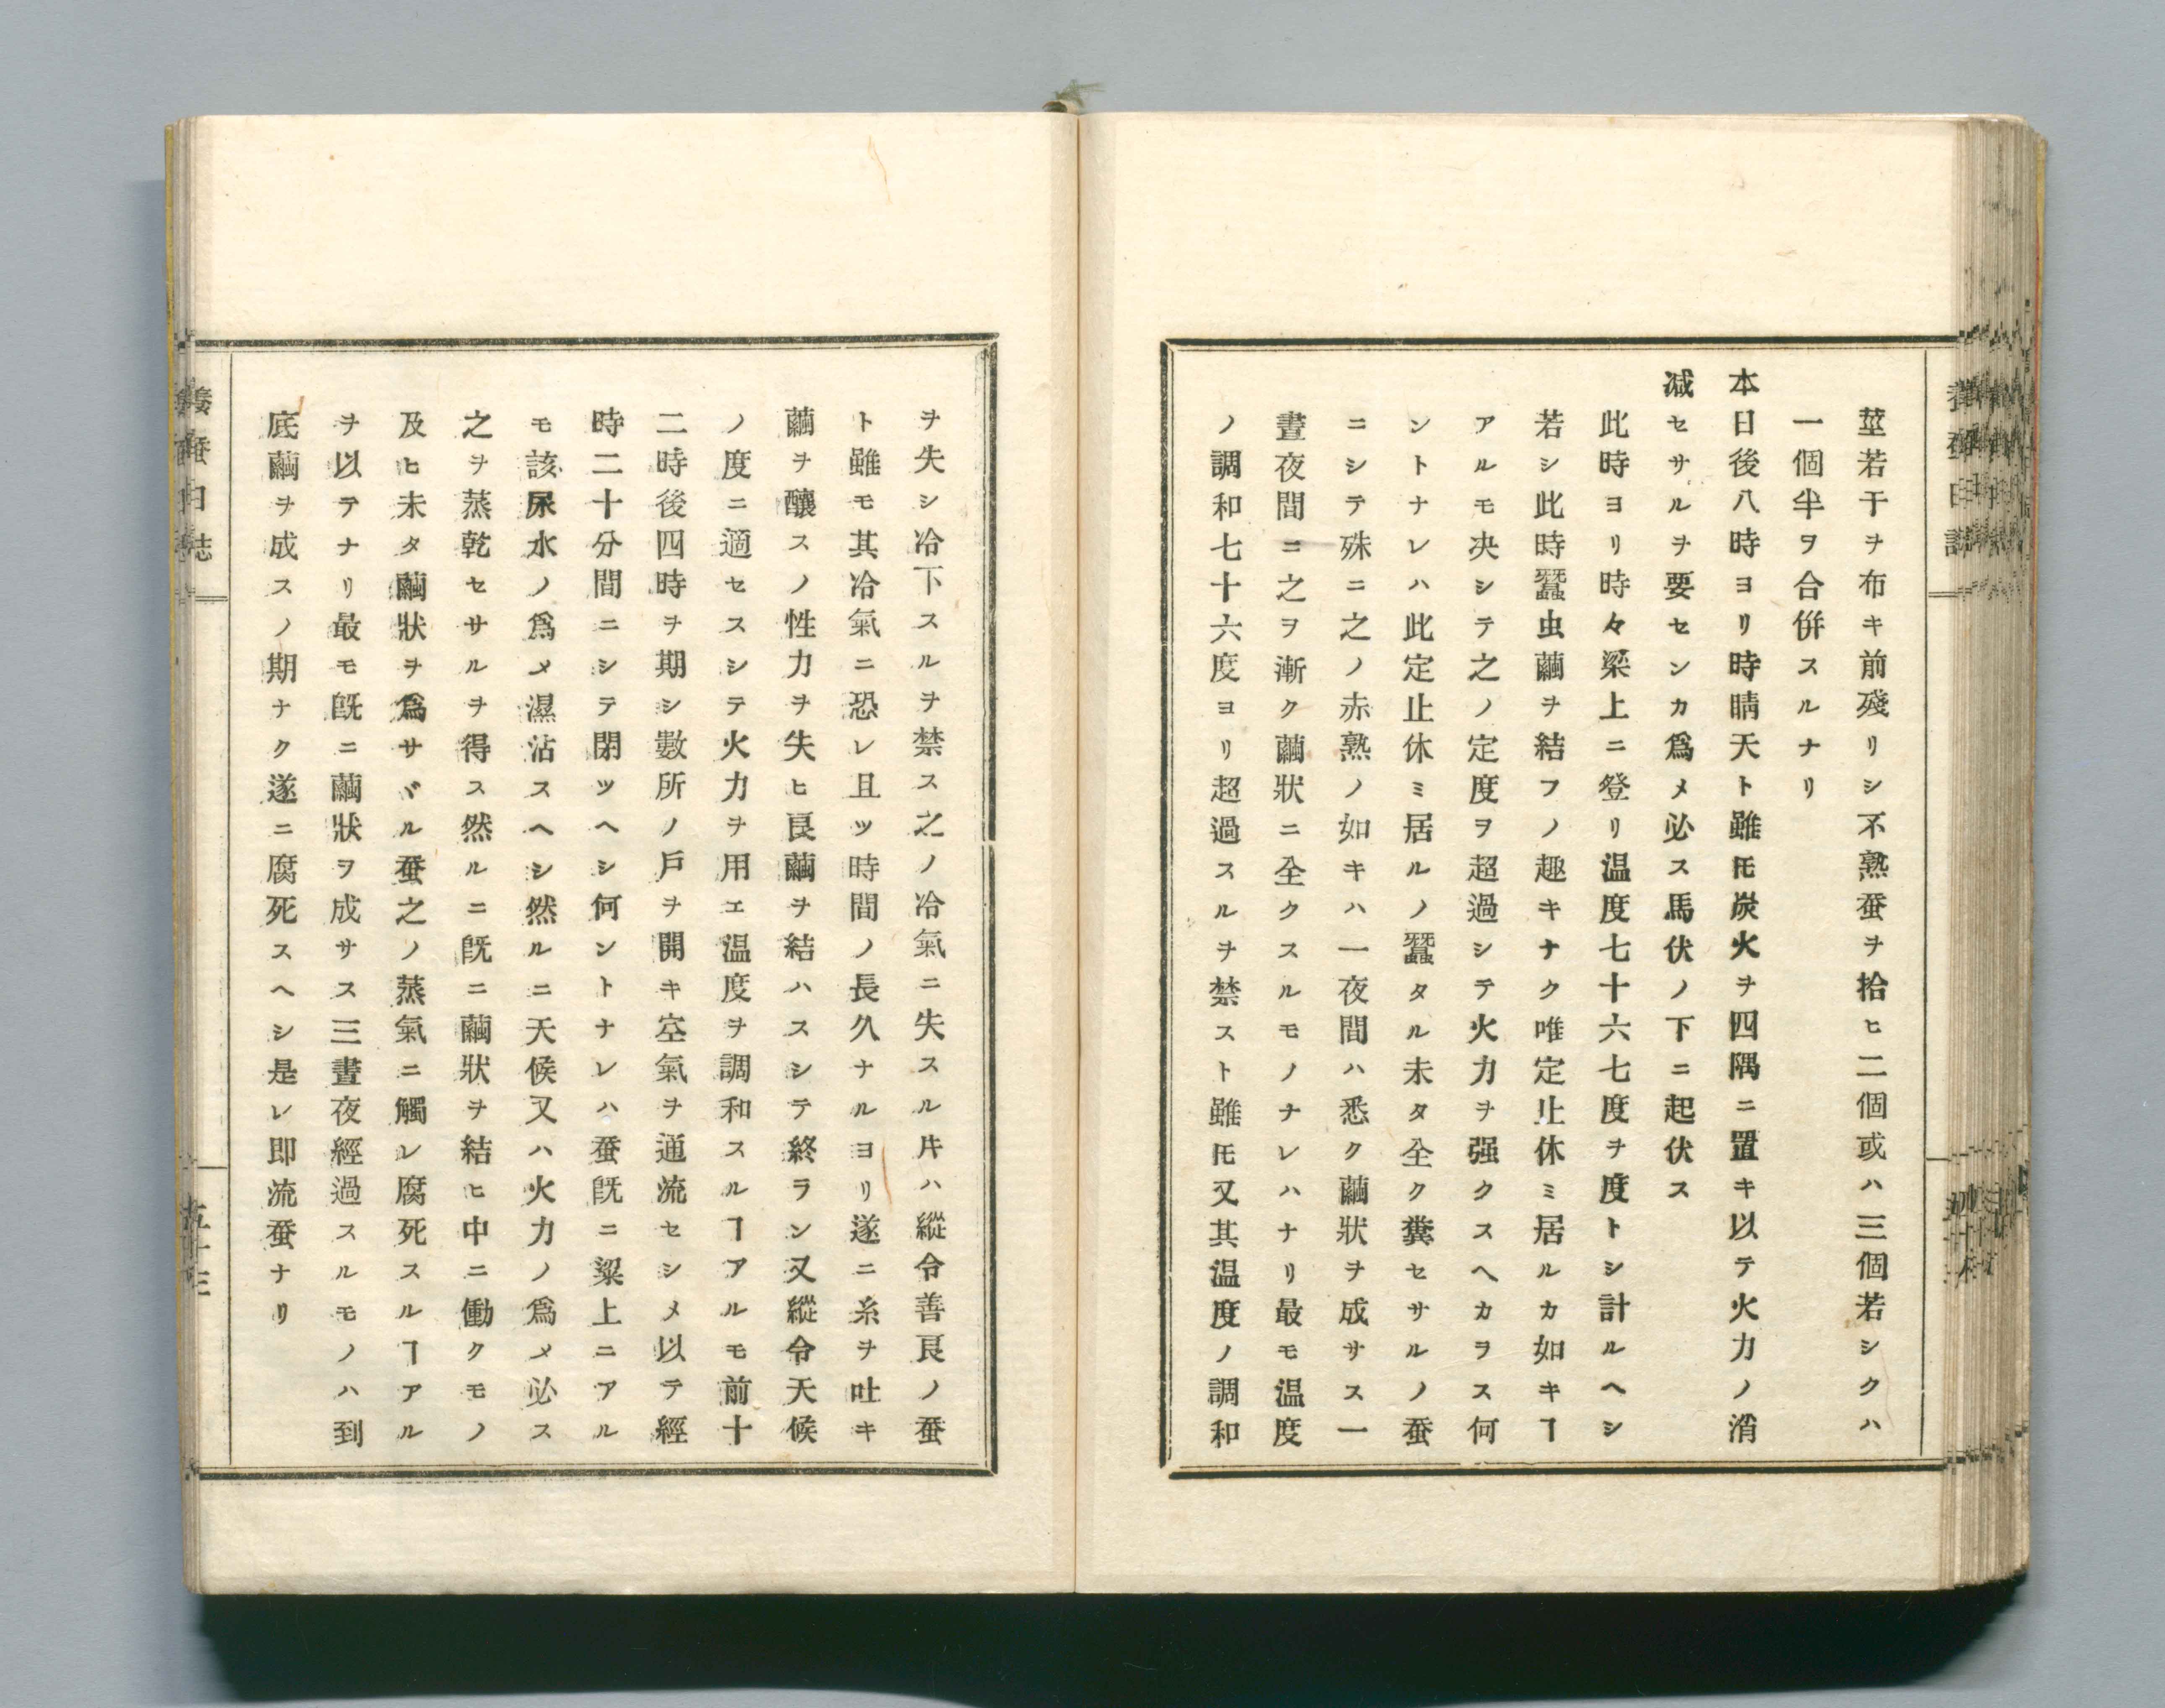 莖若干ヲ布キ前殘リシ不熟蚕ヲ拾ヒ二個或ハ三個若シクハ
一個半ヲ合併スルナリ
本日後八時ヨリ時晴天ト雖𪜈炭火ヲ四隅ニ置キ以テ火力ノ消
減セサルヲ要センカ爲メ必ス馬伏ノ下ニ起伏ス
此時ヨリ時々梁上ニ登リ温度七十六七度ヲ度トシ計ルヘシ
若シ此時蠶虫繭ヲ結フノ趣キナク唯定止休ミ居ルカ如キヿ
アルモ决シテ之ノ定度ヲ超過シテ火力ヲ强クスヘカヲス何
ントナレハ此定止休ミ居ルノ蠶タル未タ全ク糞セサルノ蚕
ニシテ殊ニ之ノ赤熟ノ如キハ一夜間ハ悉ク繭狀ヲ成サス一
晝夜間ニ之ヲ漸ク繭狀ニ全クスルモノナレハナリ最モ温度
ノ調和七十六度ヨリ超過スルヲ禁スト雖𪜈又其温度ノ調和
ヲ失シ冷下スルヲ禁ス之ノ冷氣ニ失スル片ハ縱令善良ノ蚕
ト雖モ其冷氣ニ恐レ且ツ時間ノ長久ナルヨリ遂ニ糸ヲ吐キ
繭ヲ釀スノ性力ヲ失ヒ良繭ヲ結ハスシテ終ラン又縱令天候
ノ度ニ適セスシテ火力ヲ用エ温度ヲ調和スルヿアルモ前十
二時後四時ヲ期シ數所ノ戶ヲ開キ空氣ヲ通流セシメ以テ經
時二十分間ニシテ閉ツヘシ何ントナレハ蚕旣ニ粱上ニアル
モ該尿水ノ爲メ濕沾スヘシ然ルニ天候又ハ火力ノ爲メ必ス
之ヲ蒸乾セサルヲ得ス然ルニ旣ニ繭狀ヲ結ヒ中ニ働クモノ
及ヒ未タ繭狀ヲ爲サヾル蚕之ノ蒸氣ニ觸レ腐死スルヿアル
ヲ以テナリ最モ旣ニ繭狀ヲ成サス三晝夜經過スルモノハ到
底繭ヲ成スノ期ナク遂ニ腐死スヘシ是レ即流蚕ナリ
養蚕日誌